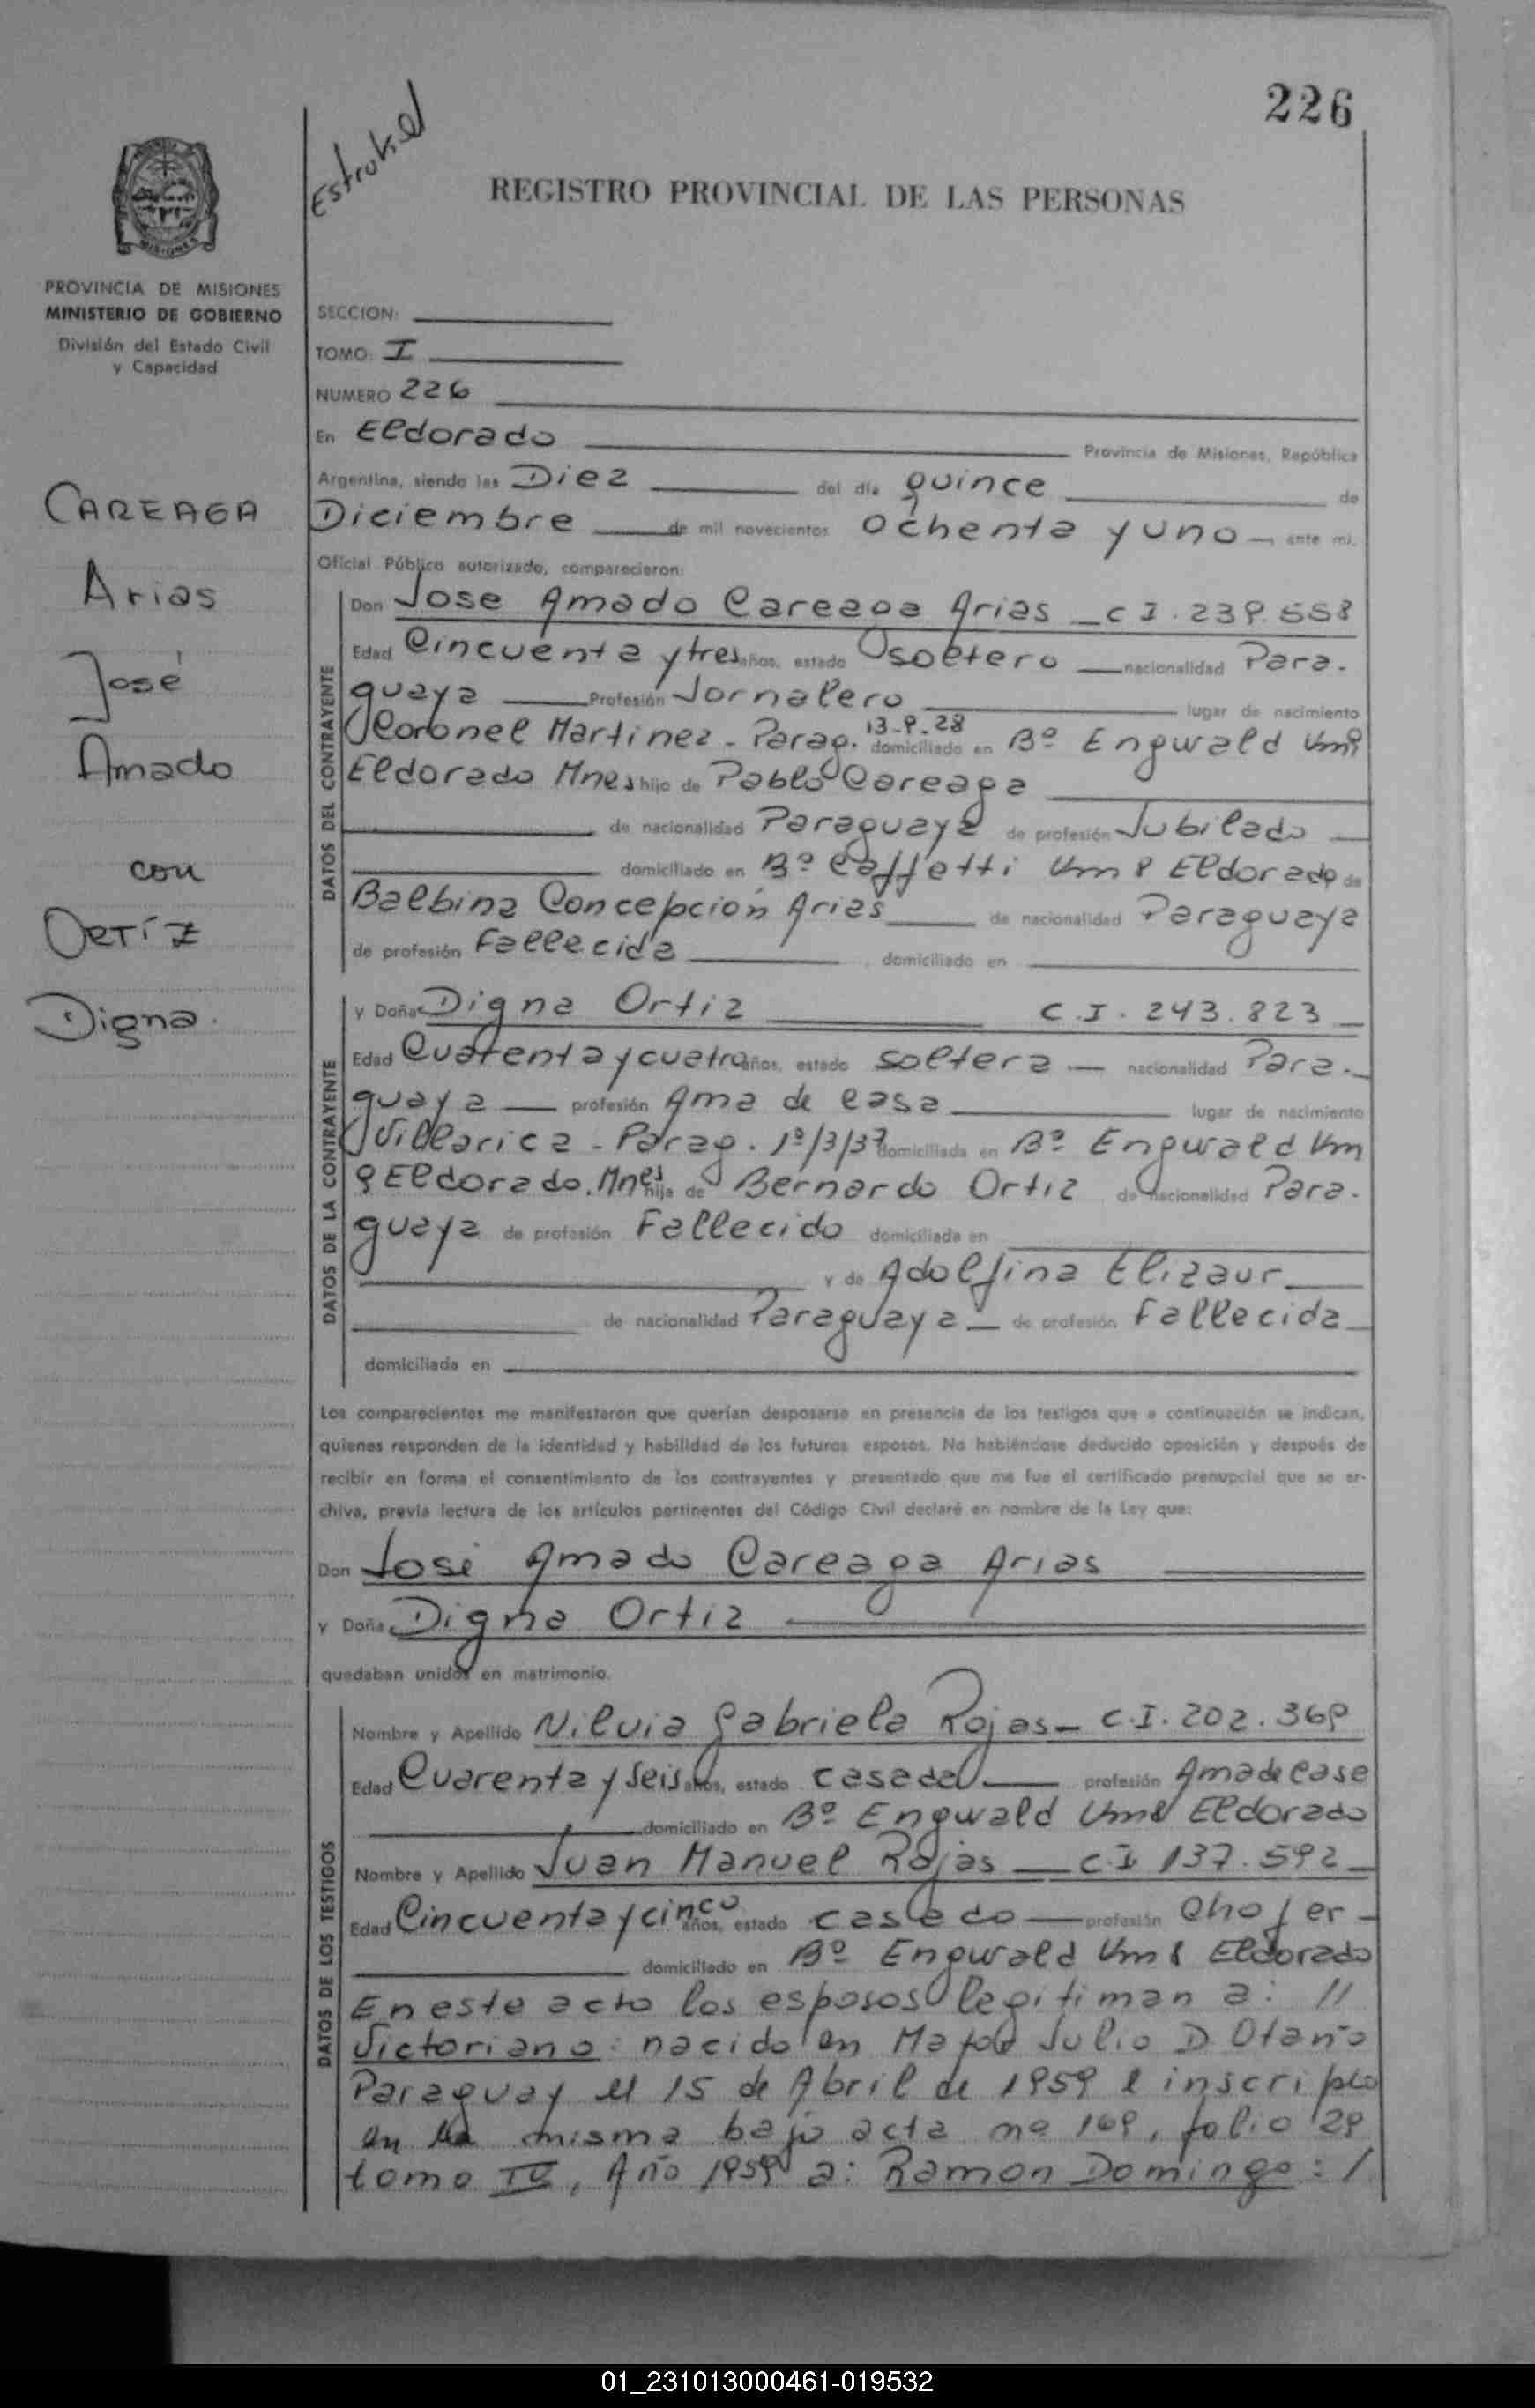 226
Estrukel
REGISTRO PROVINCIAL DE LAS PERSONAS
MISIONES
PROVINCIA DE MISIONES
MINISTERIO DE GOBIERNO
División del Estado Civil
y Capacidad
CAREAGA
Arias
José
Amado
con
ORTÍZ
Digna.
SECCION:
TOMO: I
NUMERO 226
En Eldorado Provincia de Misiones, República
Argentina, siendo las Diez del día quince de
Diciembre de mil novecientos ochenta y uno ante mi,
Oficial Público autorizado, comparecieron:
DATOS DEL CONTRAYENTE
Don Jose Amado Careaga Arias C I. 239.558
Edad Cincuenta y tres años, estado soltero nacionalidad Para.
guaya Profesión Jornalero lugar de nacimiento
Coronel Martinez - Parag. 13-9-28 domiciliado en Bº Engwald Km 9
Eldorado Mnes hijo de Pablo Careaga
de nacionalidad Paraguaya de profesión Jubilado
domiciliado en Bº Caffetti Km 8 Eldorado de
Balbina Concepción Arias de nacionalidad Paraguaya
de profesión Fallecida domiciliado en
DATOS DE LA CONTRAYENTE
y Doña Digna Ortiz C.I. 243.823
Edad Cuarenta y cuatro años, estado soltera nacionalidad Para.
guaya profesión Ama de casa lugar de nacimiento
Villarica - Parag. 1º/3/37 domiciliada en Bº Engwald Km
9 Eldorado. Mnes hija de Bernardo Ortiz de nacionalidad Para.
guaya de profesión Fallecido domiciliada en
y de Adolfina Elizaur
de nacionalidad Paraguaya de profesión Fallecida
domiciliada en
Los comparecientes me manifestaron que querían desposarse en presencia de los testigos que a continuación se indican,
quienes responden de la identidad y habilidad de los futuros esposos. No habiéndose deducido oposición y después de
recibir en forma el consentimiento de los contrayentes y presentado que me fue el certificado prenupcial que se ar-
chiva, previa lectura de los artículos pertinentes del Código Civil declaré en nombre de la Ley que:
Don José Amado Careaga Arias
y Doña Digna Ortiz
quedaban unidos en matrimonio.
DATOS DE LOS TESTIGOS
Nombre y Apellido Nilvia Gabriela Rojas - C.I. 202.369
Edad Cuarenta y seis años, estado casada profesión Ama de casa
domiciliado en Bº Engwald Km 8 Eldorado
Nombre y Apellido Juan Manuel Rojas C I 137.592
Edad Cincuenta y cinco años, estado casado profesión Chofer
domiciliado en Bº Engwald Km 8 Eldorado
En este acto los esposos legitiman a: //
Victoriano: nacido en Mayor Julio D. Otaño
Paraguay el 15 de Abril de 1959 e inscripto
en la misma bajo acta nº 169, folio 29
tomo IV, Año 1959 a: Ramon Domingo: /
01_231013000461-019532